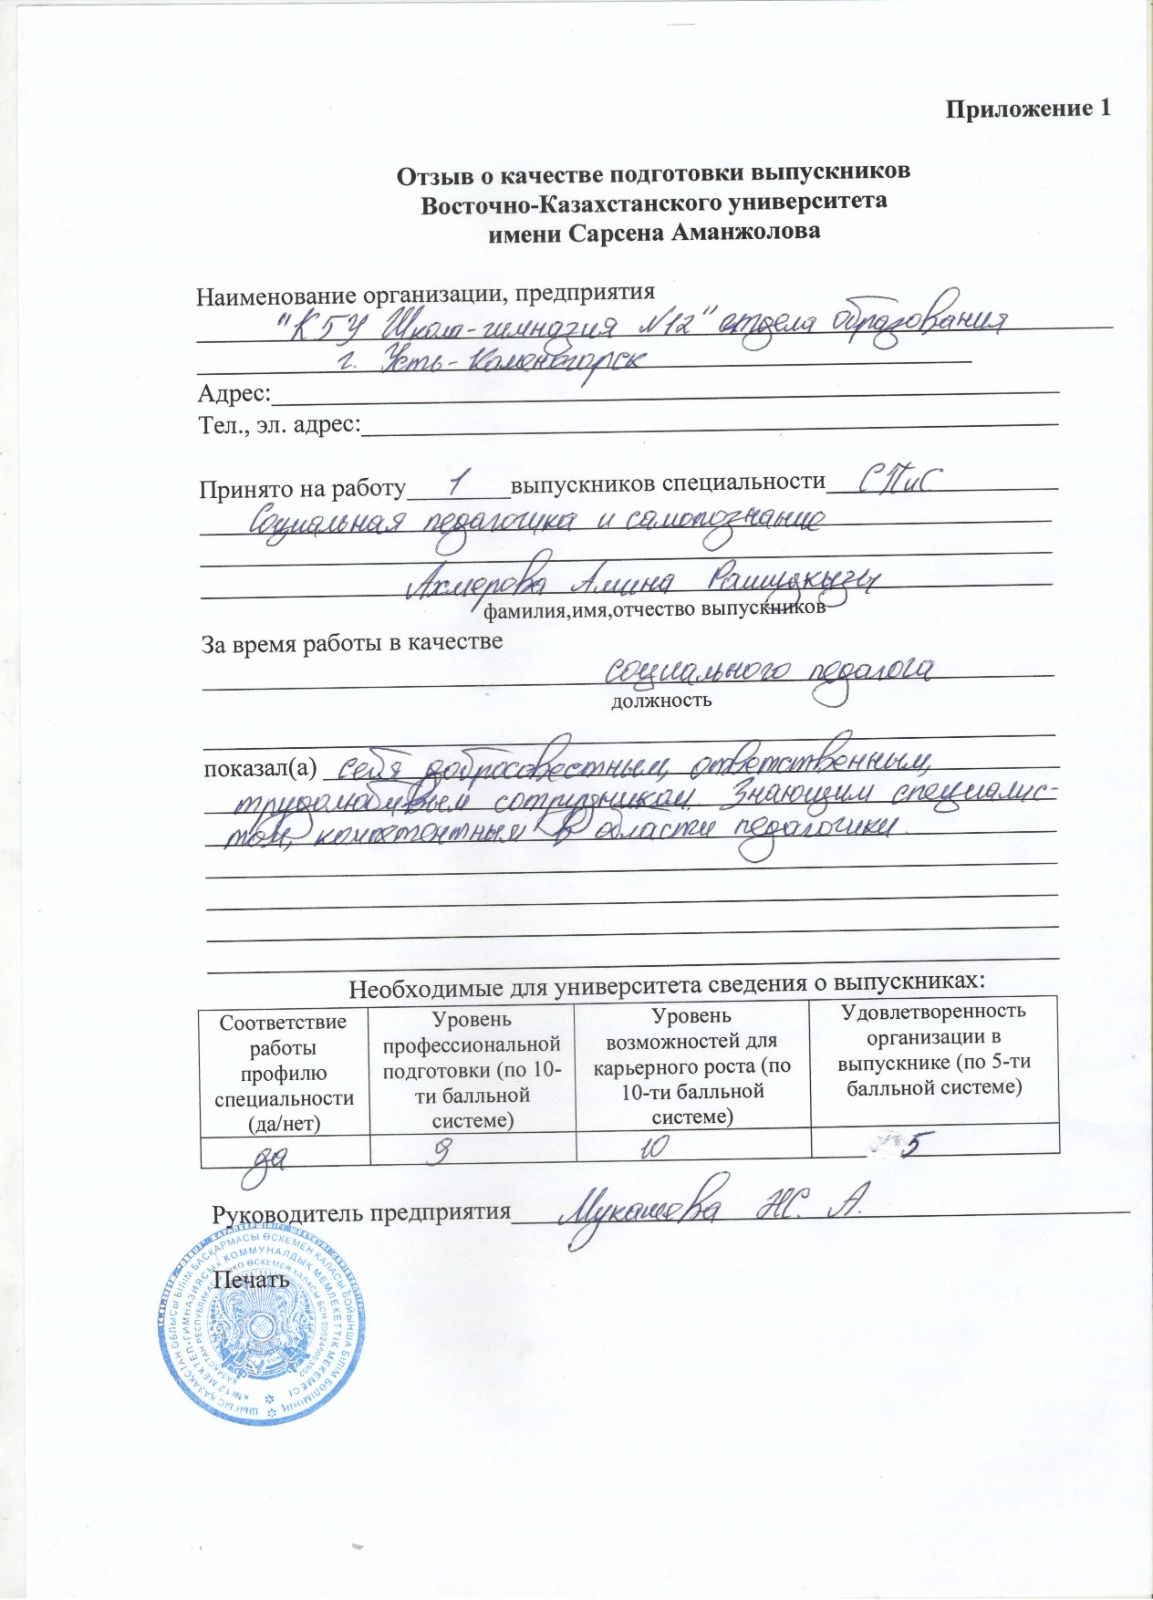 Приложение 1
Отзыв о качестве подготовки выпускников
Восточно-Казахстанского университета
имени Сарсена Аманжолова
Наименование организации, предприятия
"КГУ Школа-гимназия №12" отдела образования
г. Усть-Каменогорск
Адрес:
Тел., эл. адрес:
Принято на работу 1 выпускников специальности СПиС
Социальная педагогика и самопознание
Ахмерова Амина
фамилия,имя,отчество выпускников
За время работы в качестве
социального педагога
должность
показал(а) себя добросовестным, ответственным,
трудолюбивым сотрудником. Знающим специалис-
том, компетентным в области педагогики.
Необходимые для университета сведения о выпускниках:
Соответствие работы профилю специальности (да/нет)
Уровень профессиональной подготовки (по 10-ти балльной системе)
Уровень возможностей для карьерного роста (по 10-ти балльной системе)
Удовлетворенность организации в выпускнике (по 5-ти балльной системе)
да 9 10 5
Руководитель предприятия Мукашева Ж. А.
Печать
ШЫҒЫС ҚАЗАҚСТАН ОБЛЫСЫ БІЛІМ БАСҚАРМАСЫ ӨСКЕМЕН ҚАЛАСЫ БОЙЫНША БІЛІМ БӨЛІМІНІҢ
«№12 МЕКТЕП-ГИМНАЗИЯСЫ» КОММУНАЛДЫҚ МЕМЛЕКЕТТІК МЕКЕМЕСІ